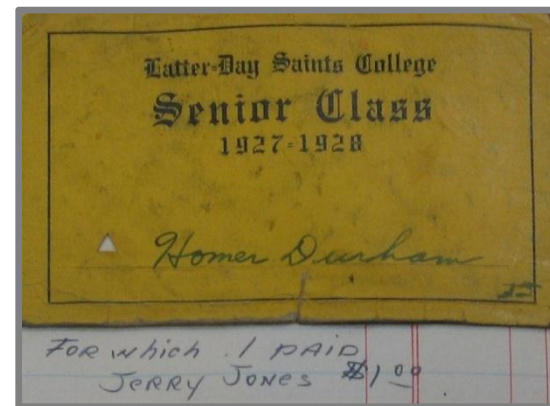 Latter-Day Saints College
Senior Class
1927-1928
Homer Durham
For which I PAID
JERRY JONES $1.00